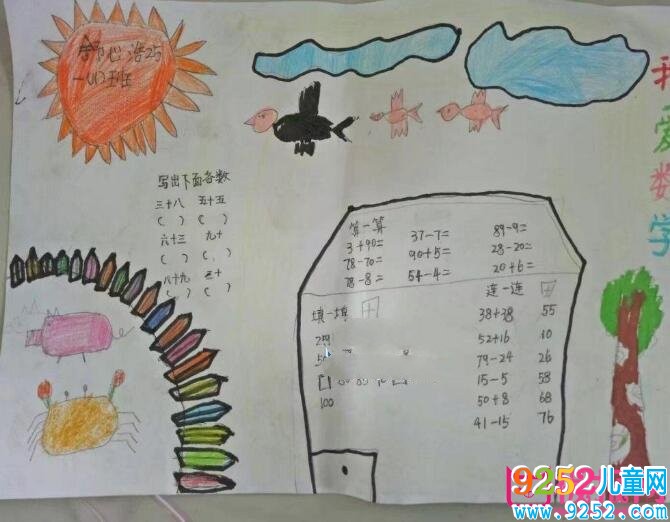 一(4)班
我爱数学
写出下面各数
三十八 五十五
( ) ( )
六十三 九十
( ) ( )
八十九 三十
( ) ( )
算一算
3+90= 37-7= 89-9=
78-70= 90+5= 28-20=
78-8= 54-4= 20+6=
填一填
100
连一连
38+38 55
52+16 10
79-24 26
15-5 58
50+8 68
41-15 76
9252儿童网
www.9252.com